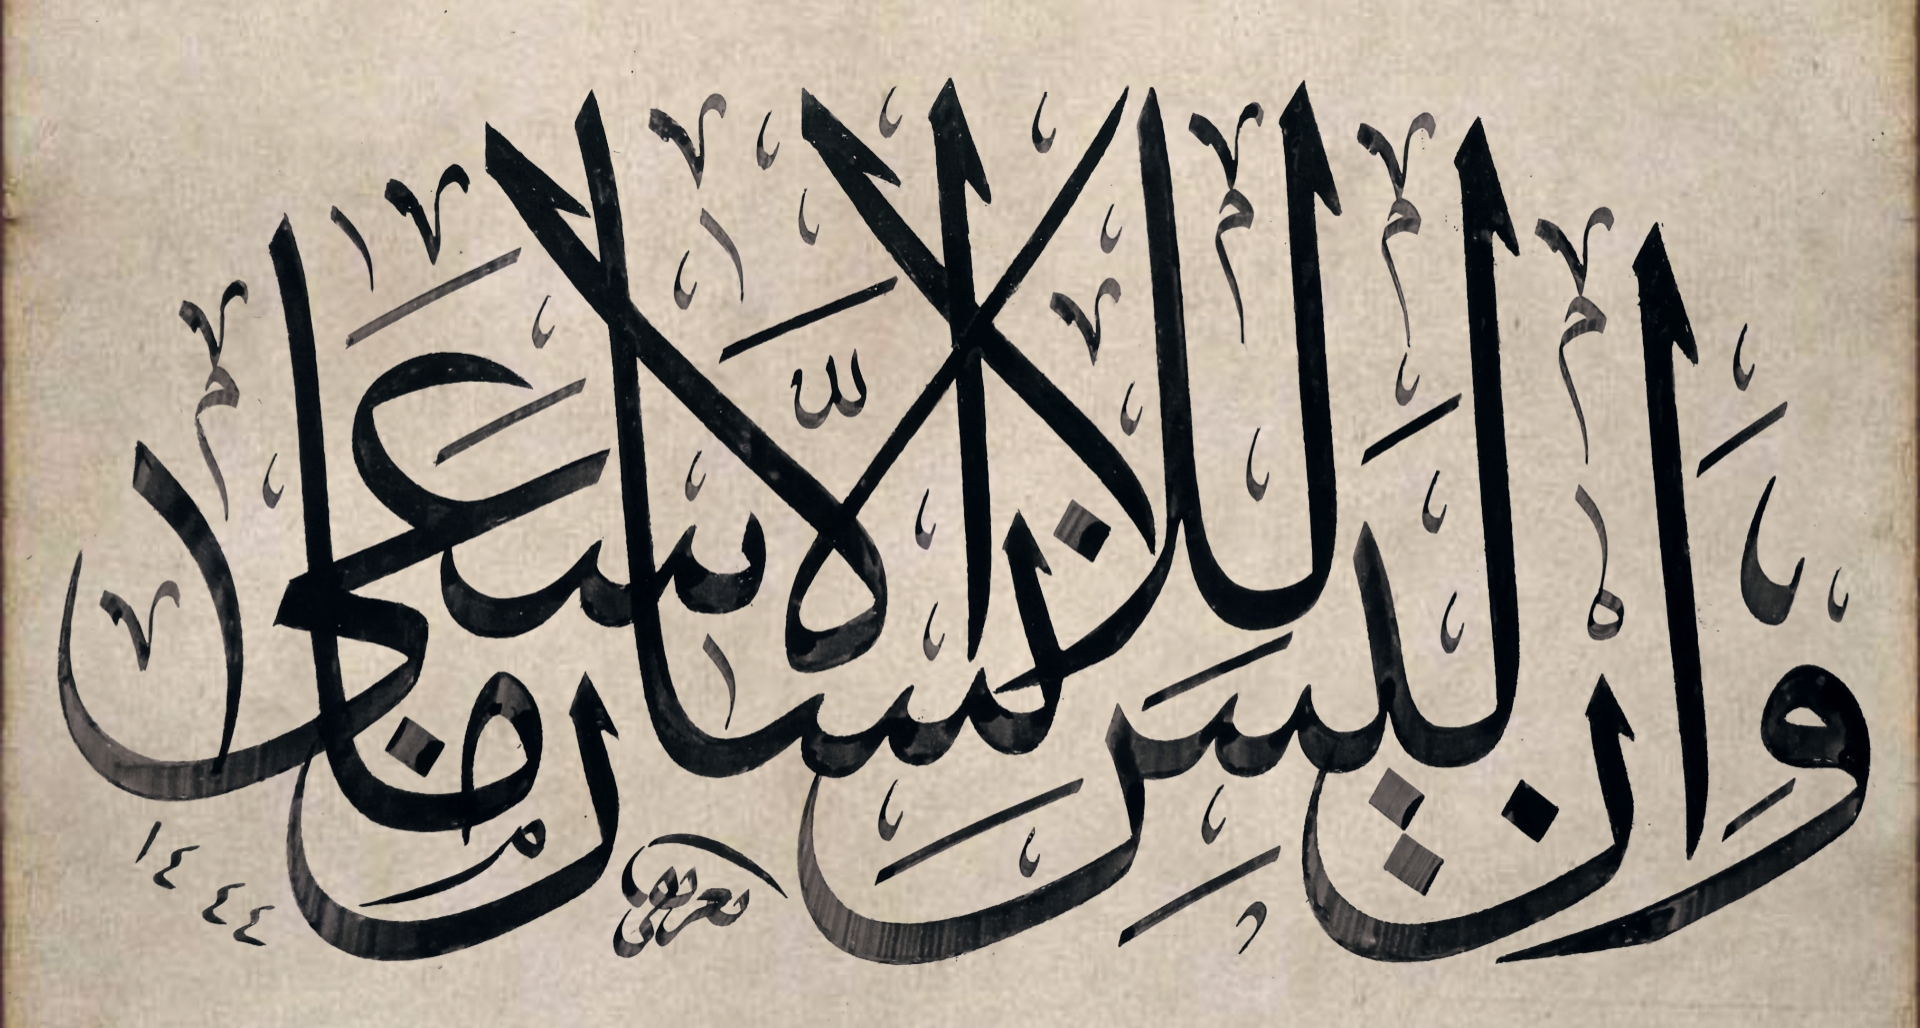 وأن ليس للإنسان إلا ما سعى
١٤٤٤